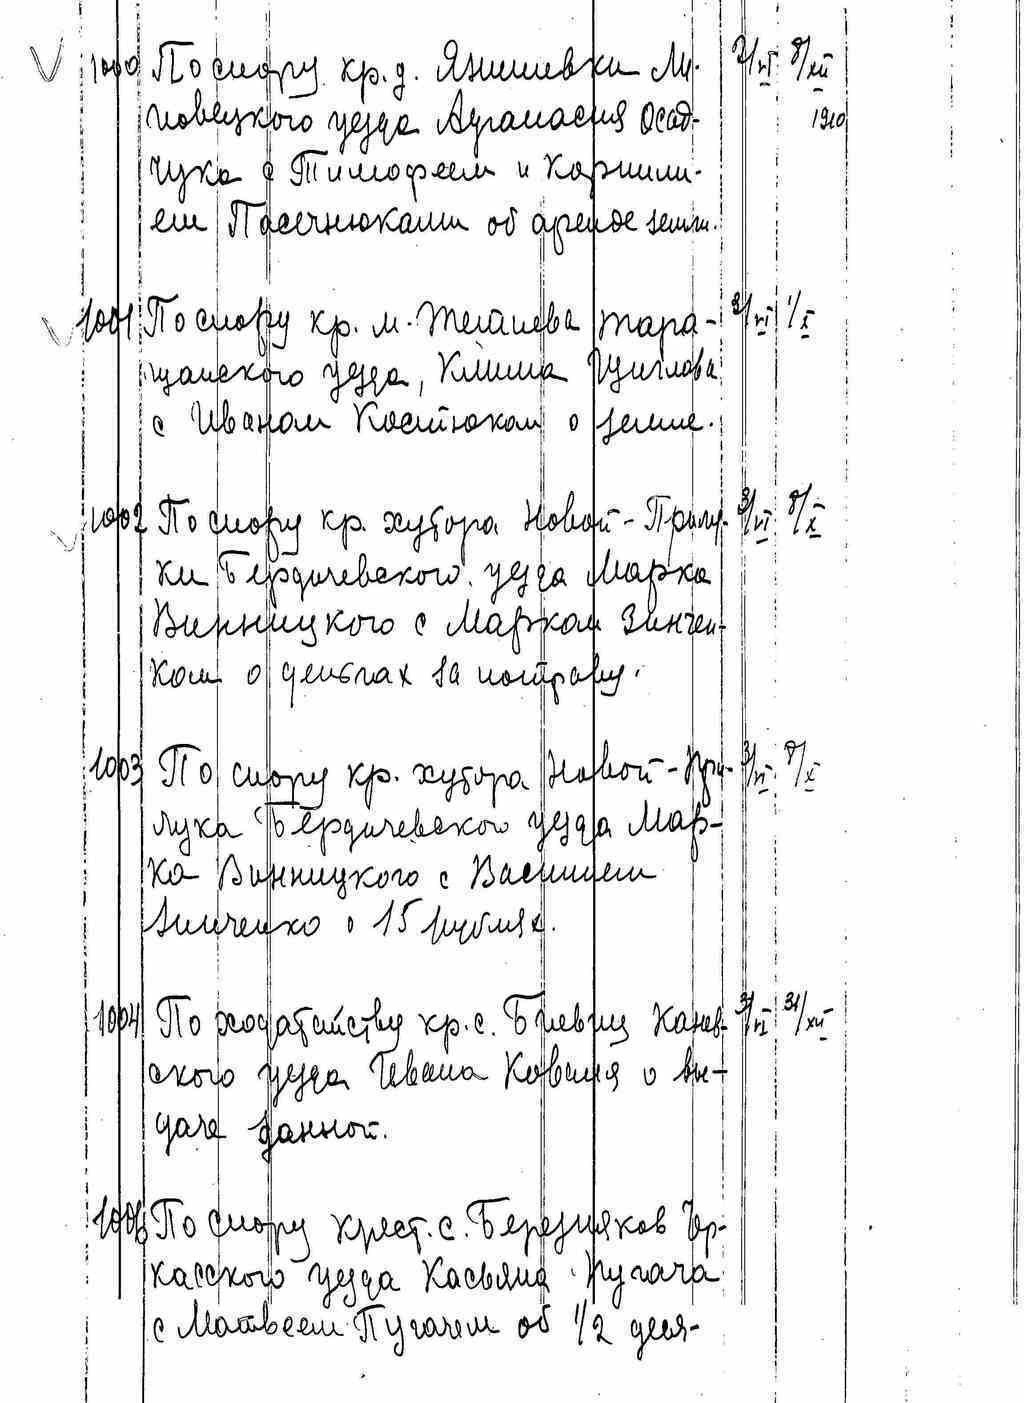 1000 По спору кр. д. Янишевки Ли- 2/VI 8/XII
повецкого уезда Афанасия Осад- 1910
чука с Тимофеем и Корнили-
ем Пасечнюками об аренде земли.
1001 По спору кр. м. Тетиева Тара- 3/VI 1/X
щанского уезда, Клима
с Иваном Костюком о земле.
1002 По спору кр. хутора Новой-Прилу- 3/VI 8/X
ки Бердичевского уезда Марка
Винницкого с Марком Зинчен-
ком о деньгах за потраву.
1003 По спору кр. хутора Новой-При- 3/VI 8/X
лука Бердичевского уезда Мар-
ка Винницкого с Василием
Зинченко о 15 рублях.
1004 По ходатайству кр. с. Канев- 3/VI 31/XII
ского уезда Ивана Коваля о вы-
даче данной.
По спору крест. с. Березняков Чер-
касского уезда Касьяна Пугача
с Матвеем Пугачем об 1/2 деся-